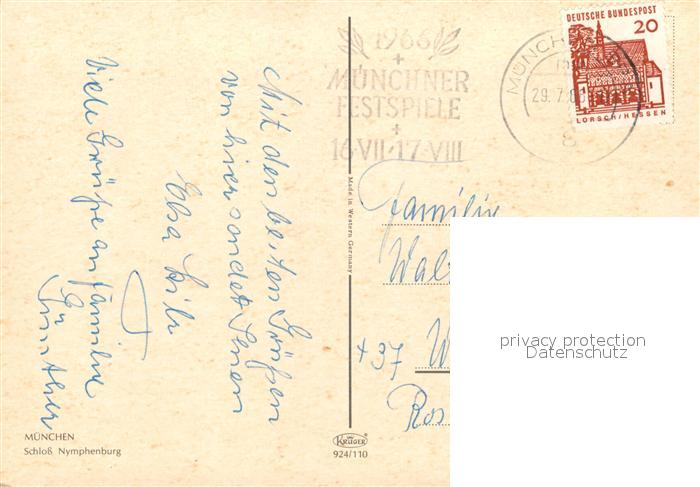 Mit den besten Grüßen
von hier sendet Ihnen
Elsa
Viele Grüße an Familie
Günther
MÜNCHEN
Schloß Nymphenburg
Made in Western Germany
KRÜGER
924/110
1966
+
MÜNCHNER
FESTSPIELE
+
16·VII-17·VIII
MÜNCHEN
29.7.66
8
DEUTSCHE BUNDESPOST
20
LORSCH/HESSEN
Familie
Wal
+37 W
Ros
privacy protection
Datenschutz